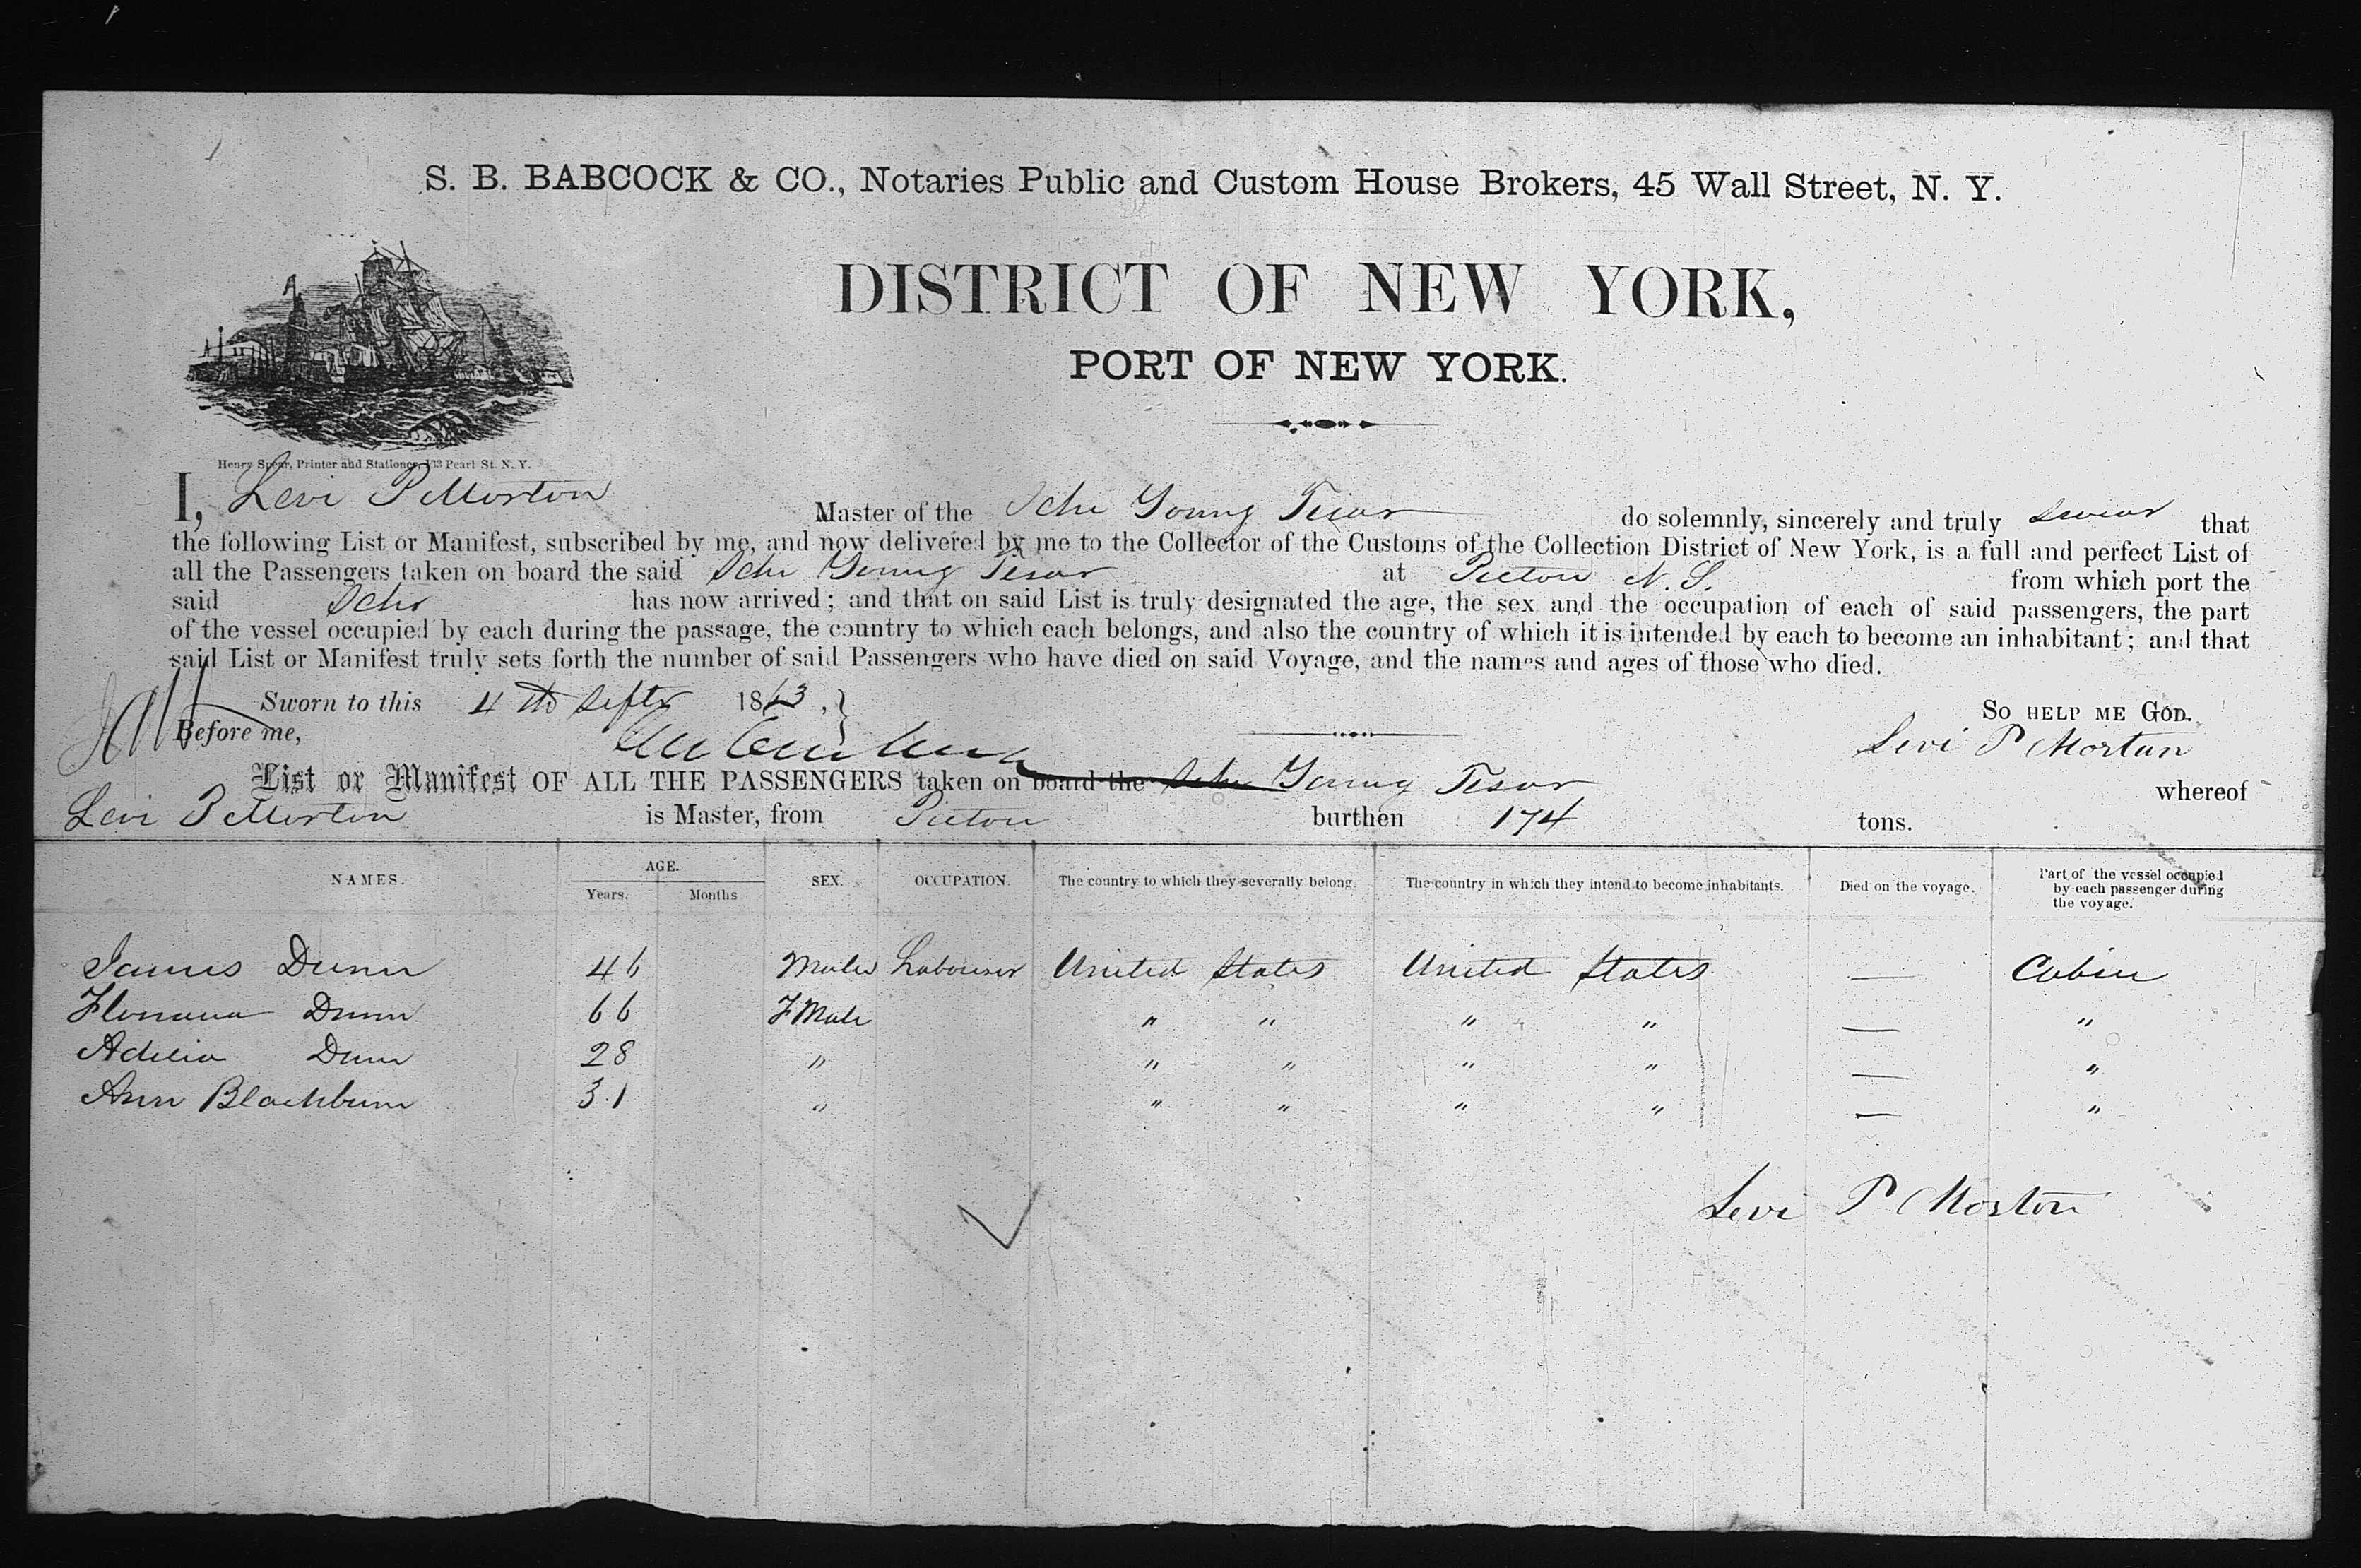 S. B. BABCOCK & CO., Notaries Public and Custom House Brokers, 45 Wall Street, N. Y.
DISTRICT OF NEW YORK,
PORT OF NEW YORK.
Henry Spear, Printer and Stationer, 133 Pearl St. N. Y.
I, Levi P Morton Master of the Schr Young do solemnly, sincerely and truly swear that
the following List or Manifest, subscribed by me, and now delivered by me to the Collector of the Customs of the Collection District of New York, is a full and perfect List of
all the Passengers taken on board the said Schr Young at Pictou N. S. from which port the
said Schr has now arrived; and that on said List is truly designated the age, the sex and the occupation of each of said passengers, the part
of the vessel occupied by each during the passage, the country to which each belongs, and also the country of which it is intended by each to become an inhabitant; and that
said List or Manifest truly sets forth the number of said Passengers who have died on said Voyage, and the names and ages of those who died.
Sworn to this 4th Septr 1863, So help me God.
Before me, Levi P Morton
List or Manifest OF ALL THE PASSENGERS taken on board the Schr Young whereof
Levi P Morton is Master, from Pictou burthen 174 tons.
NAMES. AGE. Years. Months SEX. OCCUPATION. The country to which they severally belong. The country in which they intend to become inhabitants. Died on the voyage. Part of the vessel occupied by each passenger during the voyage.
James Dunn 46 Male Labourer United States United States — Cabin
Dunn 66 FMale " " " " — "
Adelia Dunn 28 " " " " " — "
Ann Blackburn 31 " " " " " — "
Levi P Morton